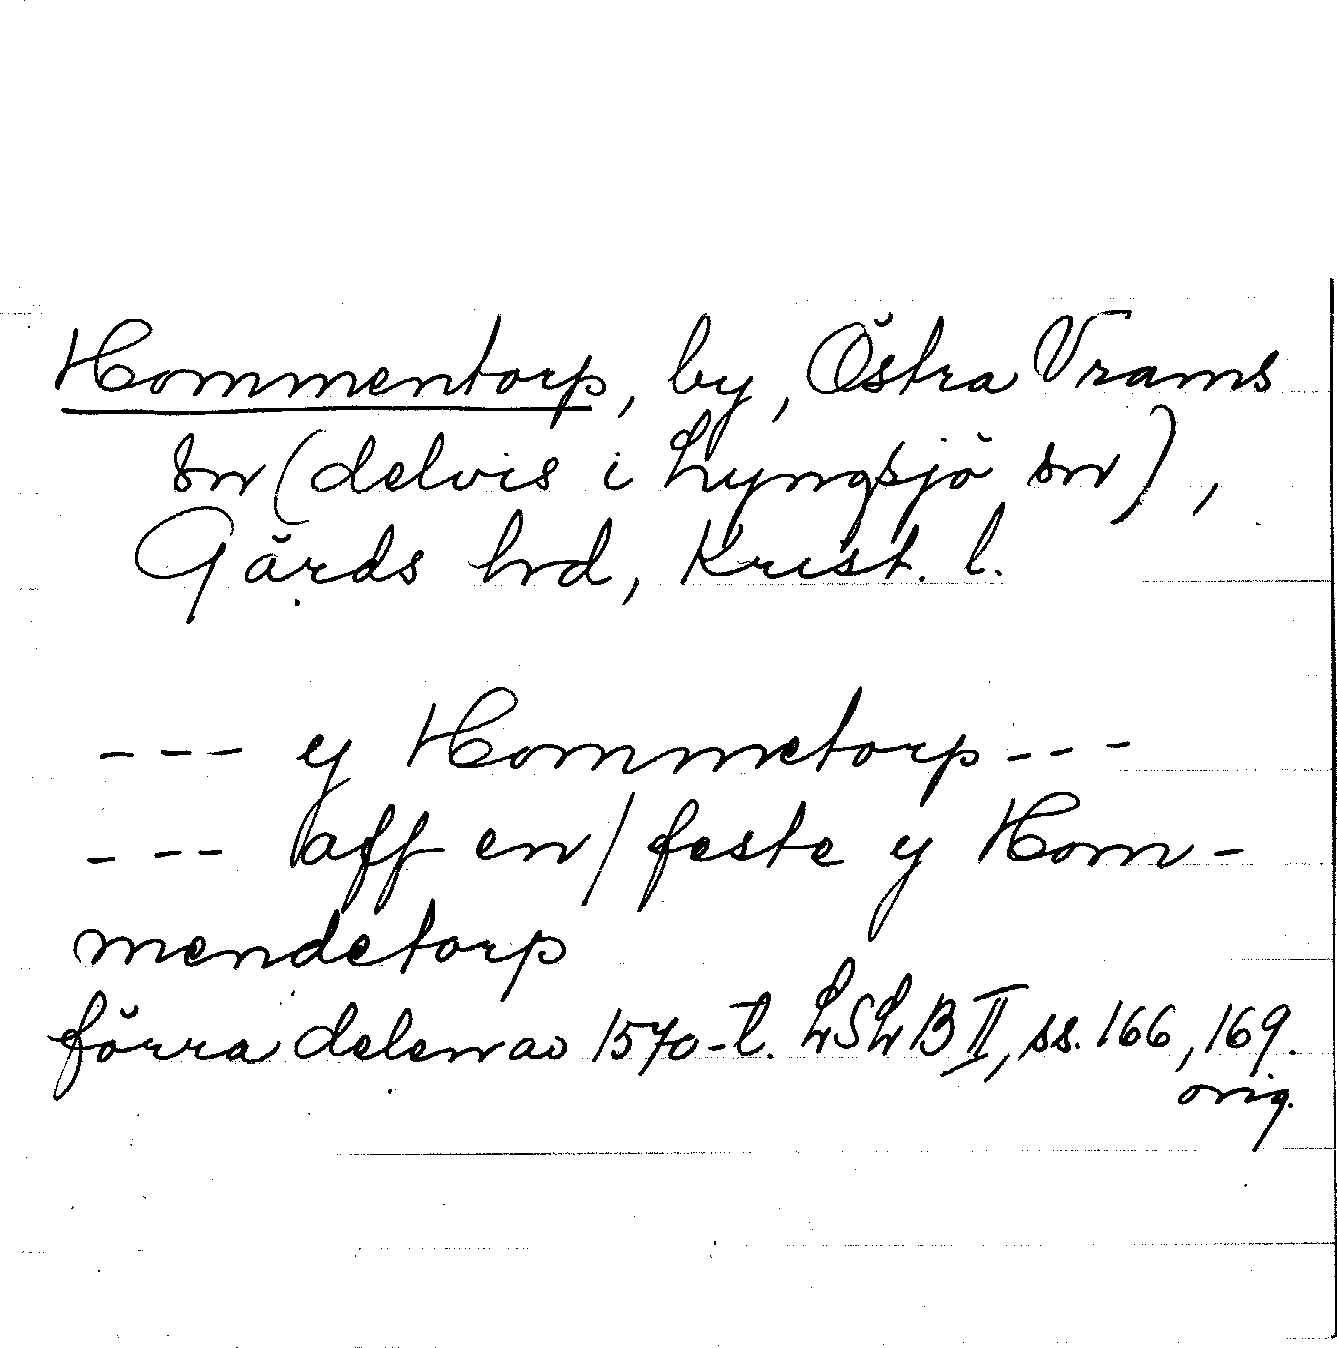 Hommentorp, by, Östra Vrams
sn (delvis i Lyngsjö sn),
Gärds hrd, Krist. l.
--- y Hommetorp ---
--- aff en / feste y Hom-
mendetorp
förra delen av 1570-t. LSLB II, ss. 166, 169.
orig.